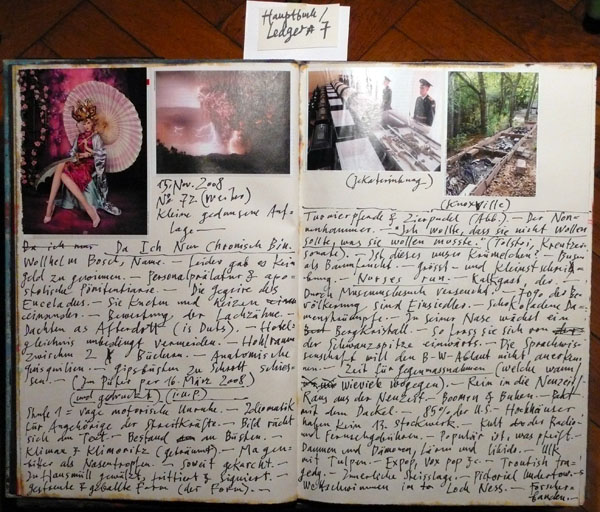 Hauptbuch/
Ledger # 7
15. Nov. 2008
No 72 (recto)
kleine gedunsene Auf-
lage —
(Jekaterinburg)
(Knoxville)
Da Ich Nun Chronisch Bin.
Wollhelm Bosch, Name. — Leider gab es kein
Geld zu gewinnen. — Personalprälatur & apo-
stolische Pönitentiarie. — Die Gegire des
Enceladus. — Sie kneten und heizen
einander. — Bewertung der Lachzähne. —
Dachten als Afterdott (is Duts). — Hotel-
gleichnis unbedingt vermeiden. — Hohlraum
zwischen 2 Büchern. — Anatomische
Gipsbüchsen zu Schrott schies-
sen. — (In Papier per 16. März 2008)
(und gedruckt) (i.u.P.)
Stufe 1 = vage motorische Unruhe. — Idiomatik
für Angehörige der Streitkräfte. — Bild rächt
sich am Text. — Bestand an Büsten. —
Klimax & Klimoritz (geträumt). — Magen-
bitter als Nasentropfen. — Soweit gekarscht. —
In Hanfmull gewälzt, frittiert & signiert. —
gestreute & geballte Form (der Form). —
Turnierpferde & Zierpudel (Abb.). — Der Non-
nenhammer. — "Ich wollte, dass sie nicht wollen
sollte, was sie wollen musste." (Tolstoi, Kreutzer-
sonate). — Ist dieses unser Krümelchen? — Busen
als Baumfrucht. — Grösst- und Kleinstschrei-
bung. — Nurses run. — Kalkgast der.
Durch Museumsbesuch verseucht. — Fogo der Be-
völkerung und Einsiedler. — Schokoladene Da-
menstrümpfe. — In seiner Nase wächst ein
Bergkristall. — So frass sie sich von
der Schwanzspitze einwärts. — Die Sprachwis-
senschaft will den B-W-Ablaut nicht anerken-
nen. — Zeit für Gegenmassnahmen (welche wann
wieviele wogegen). — Rein in die Neuzeit/
Raus aus der Neuzeit. — Boomen & Buhen. —
mit dem Dackel. — 85% der U.S.-Hochhäuser
haben kein 13. Stockwerk. — Kult der Radio-
und Fernsehgebühren. — Populär ist, was pfeift. —
Daumen und Dämonen, Lärm und Libido. — Ulk
mit Tulpen. — Expop, Vox pop &c. — Trautish tra-
gedy. — Innerliche Steisslage. — Pictorial Undertow. —
Wettschwimmen in to Loch Ness. — Forscher-
banden. —